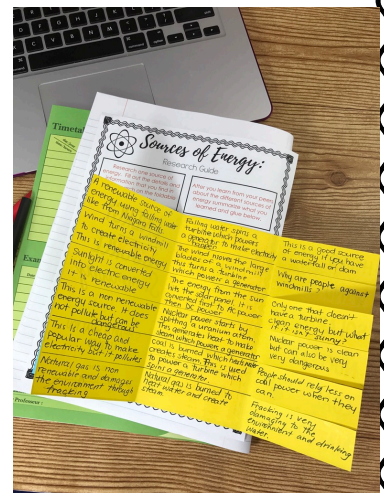 Timeta
Exa
Professeur :
Sources of Energy:
Research Guide
Research one source of
energy. Fill out the details and
information that you find in
the foldable.
After you learn from your peers
about the different sources of
energy summarize what you
learned and glue below.
A renewable source of
energy using falling water
like from Niagara Falls.
Falling water spins a
turbine which powers
a generator to make electricity
This is a good source
of energy if you have
a waterfall or dam
Wind turns a windmill
to create electricity
This is renewable energy
The wind moves the large
blades of a windmill
This turns a turbine
which powers a generator
Why are people against
windmills?
Sunlight is converted
into electric energy
It is renewable
The energy from the sun
hits the solar panel. It is
converted
Then DC power
Only one that doesn't
have a turbine
clean energy but what
if it isn't sunny?
This is a non renewable
energy source. It does
not pollute but can be
dangerous
Nuclear power starts by
spliting a uranium atom.
This generates heat to make
steam which powers a generator
Nuclear power is clean
but can also be very
very dangerous
This is a cheap and
popular way to make
electricity but it pollutes
Coal is burned which
creates steam. This is used
to power a turbine which
spins a generator
People should rely less on
coal power when they
can.
Natural gas is non
renewable and damages
the environment through
fracking
Natural gas is burned to
heat water and create
steam.
Fracking is very
damaging to the
environment and drinking
water.